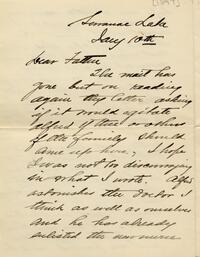 Saranac Lake
Jany 10th
Dear Father
The mail has
gone but on reading
again thy letter asking
if it would upset
Alfred if thee or others
of the family should
come up here, I hope
I was not too discouraging
in what I wrote. Alfred
astonishes the doctor I
think as well as ourselves
and he has already
enlisted the